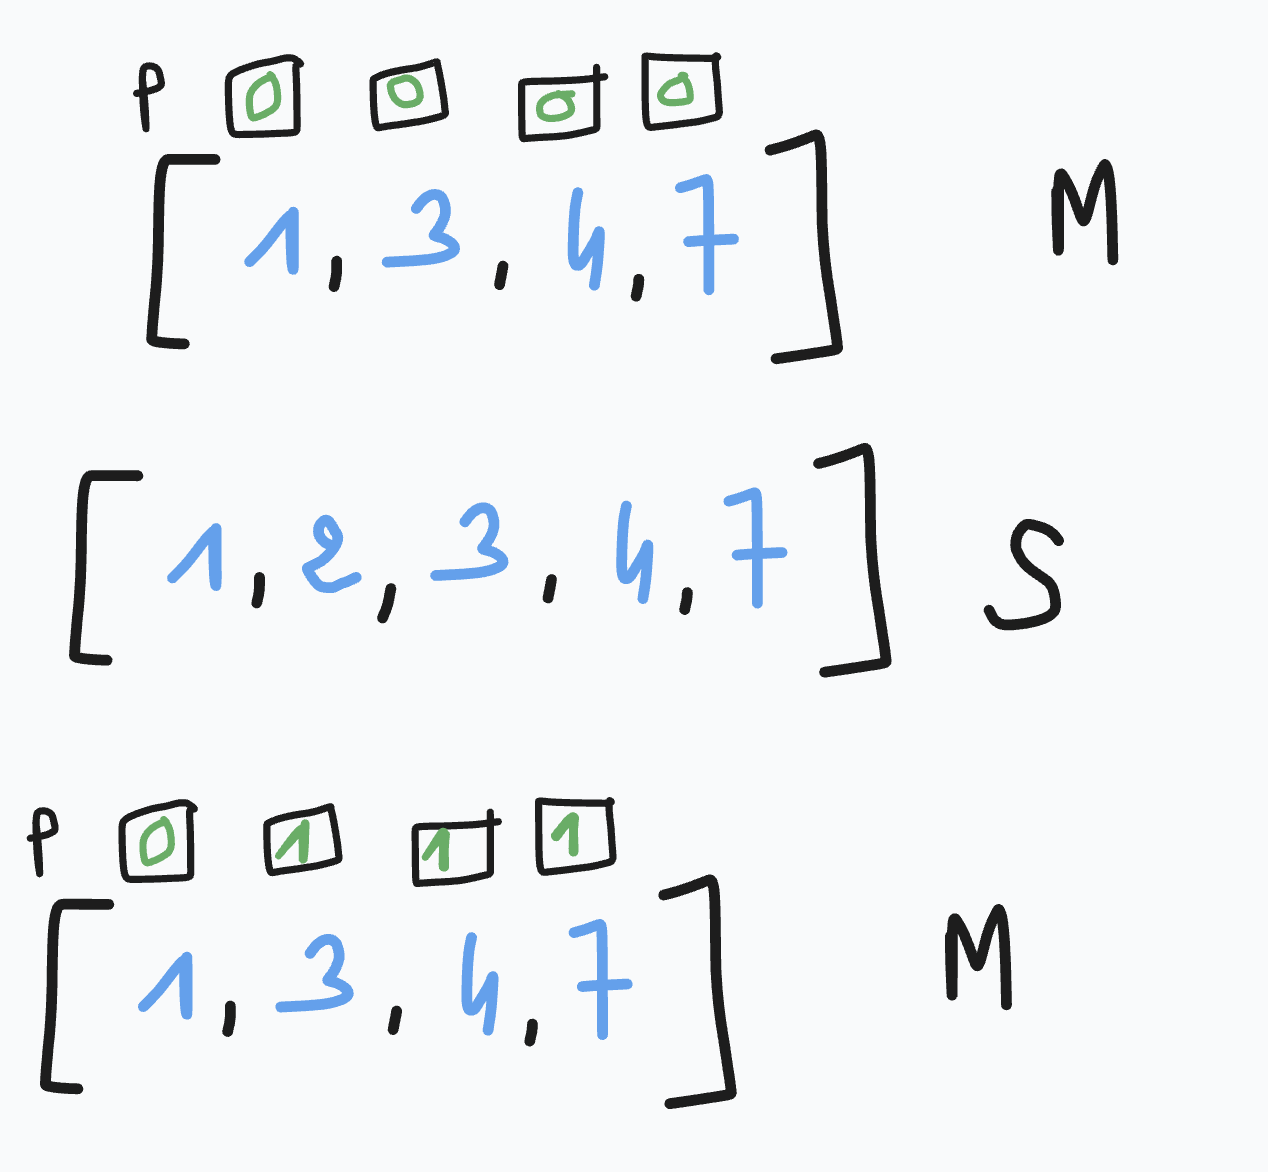 P 0 0 0 0
[1, 3, 4, 7] M
[1, 2, 3, 4, 7] S
P 0 1 1 1
[1, 3, 4, 7] M